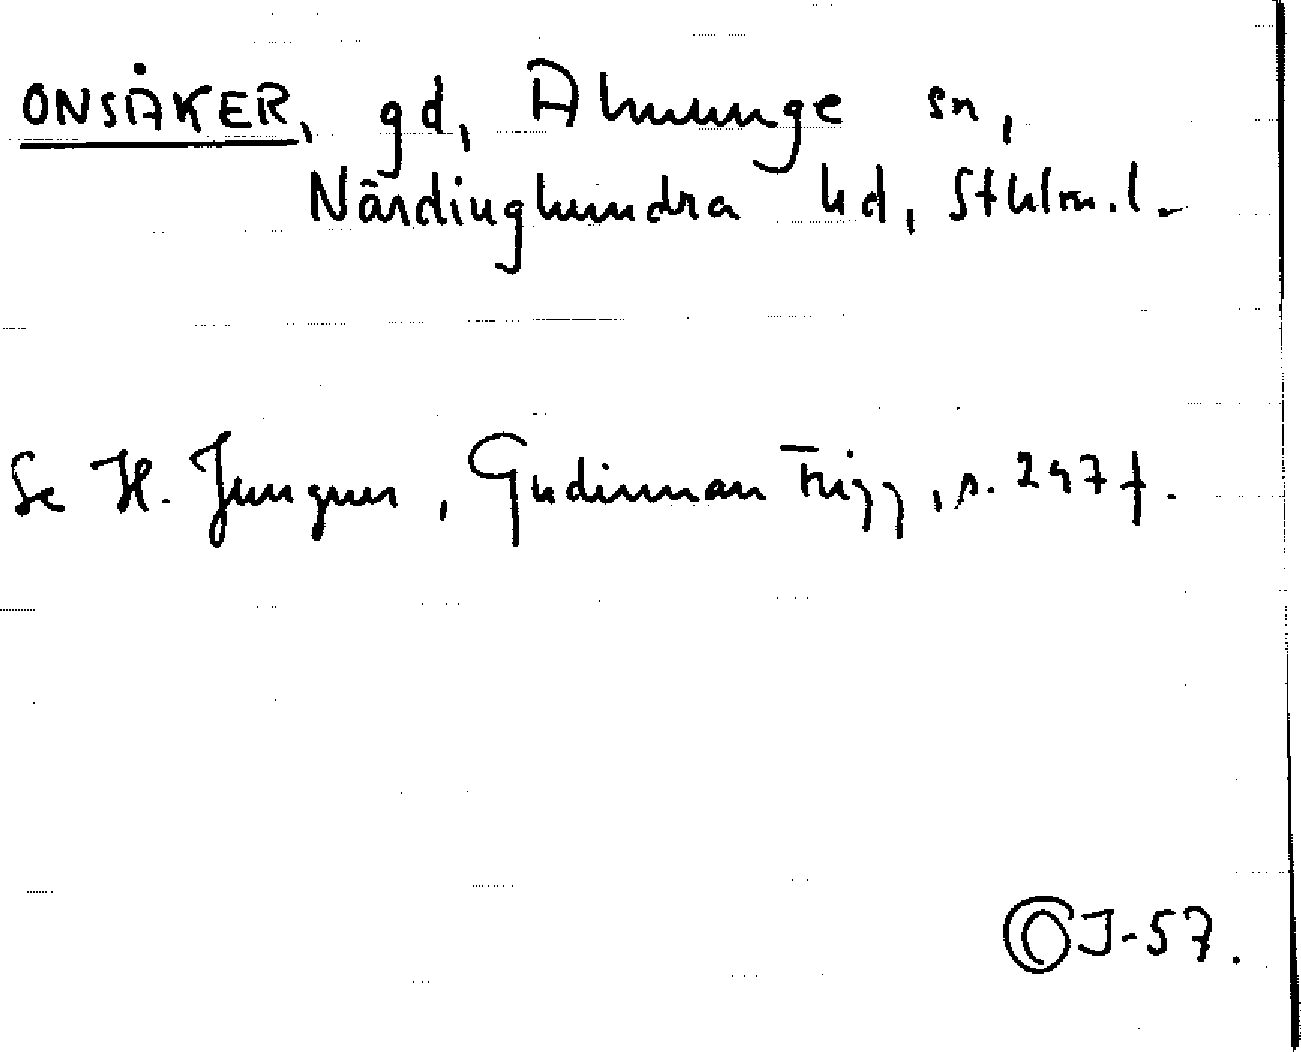 ONSÅKER, gd, Almunge sn,
Närdinghundra hd, Sthlm.l.
Se H. Jungner, Gudinnan Frigg, s. 247 f.
OJ-57.